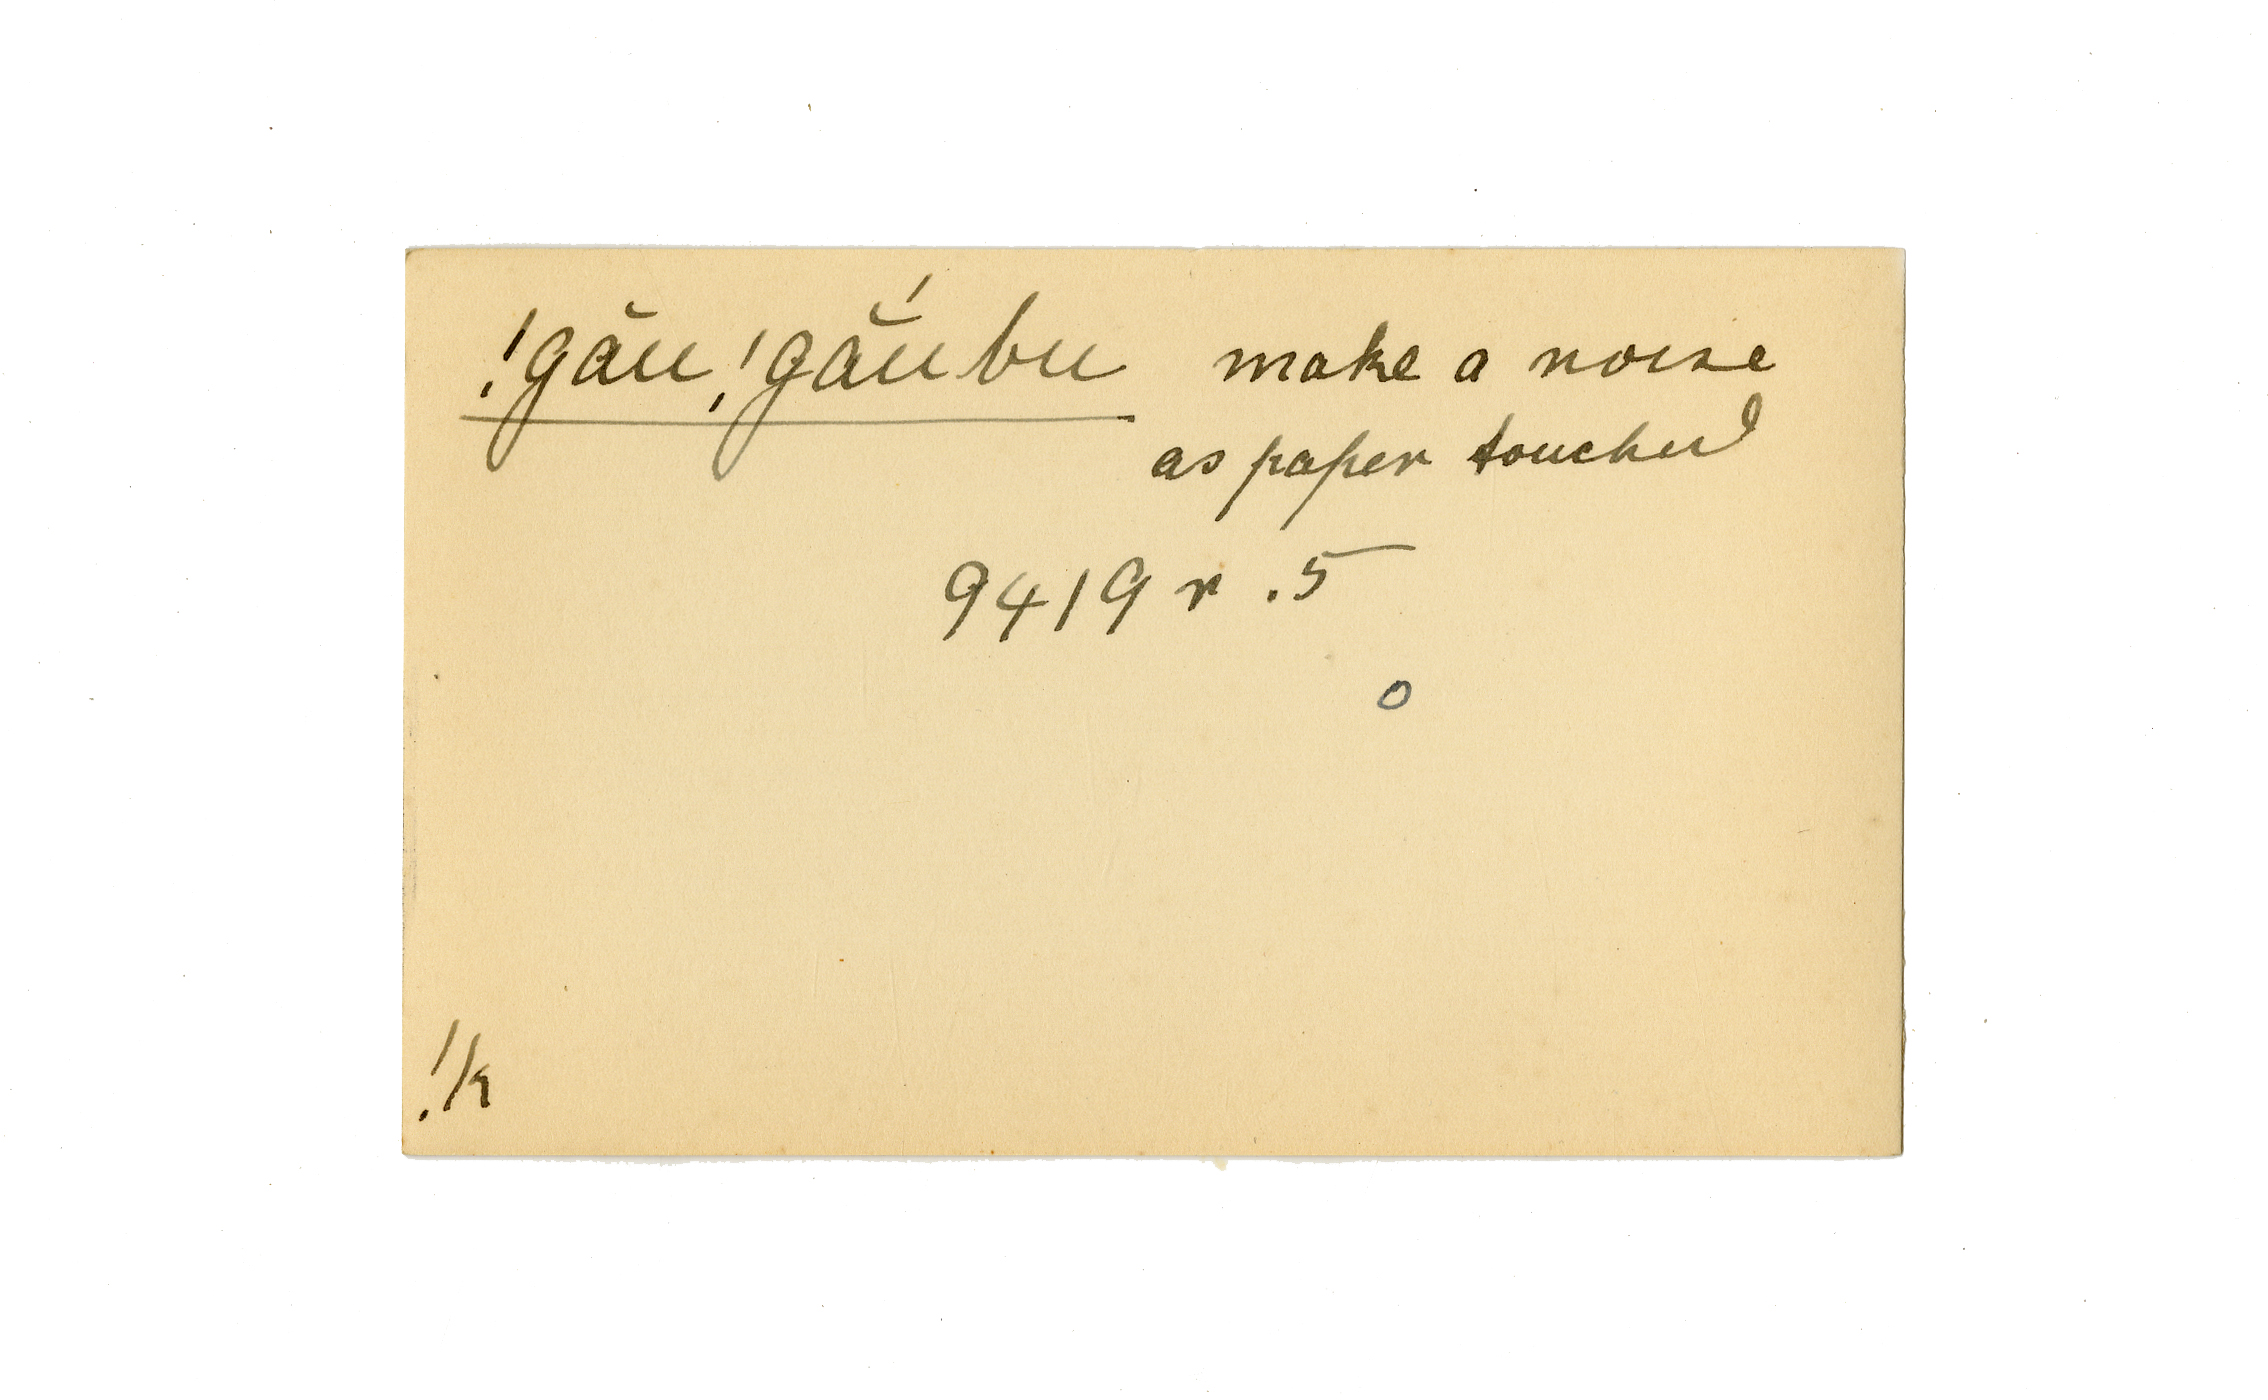 !gău!gắubu make a noise
as paper touched
9419 r .5
o
!k